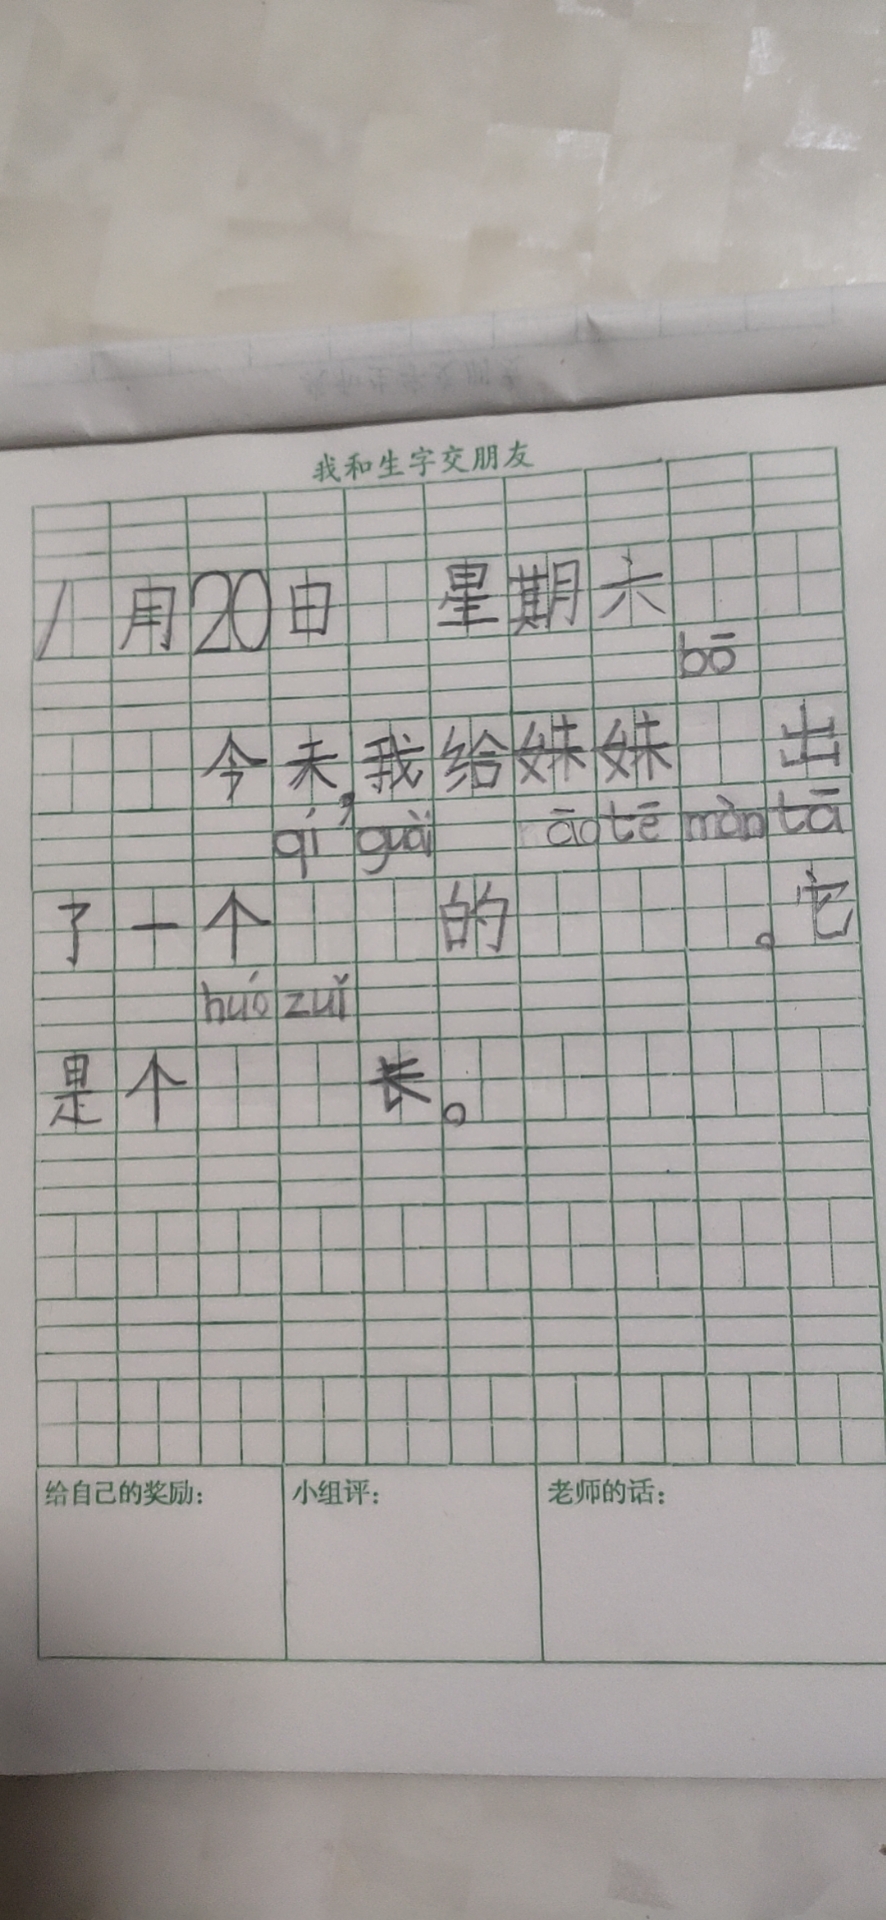 我和生字交朋友
八月20日 星期六
bō
今天,我给妹妹 出
qí guài āo tē màn tā
了一个 的 。它
huó zuǐ
是个 长。
给自己的奖励: 小组评: 老师的话: